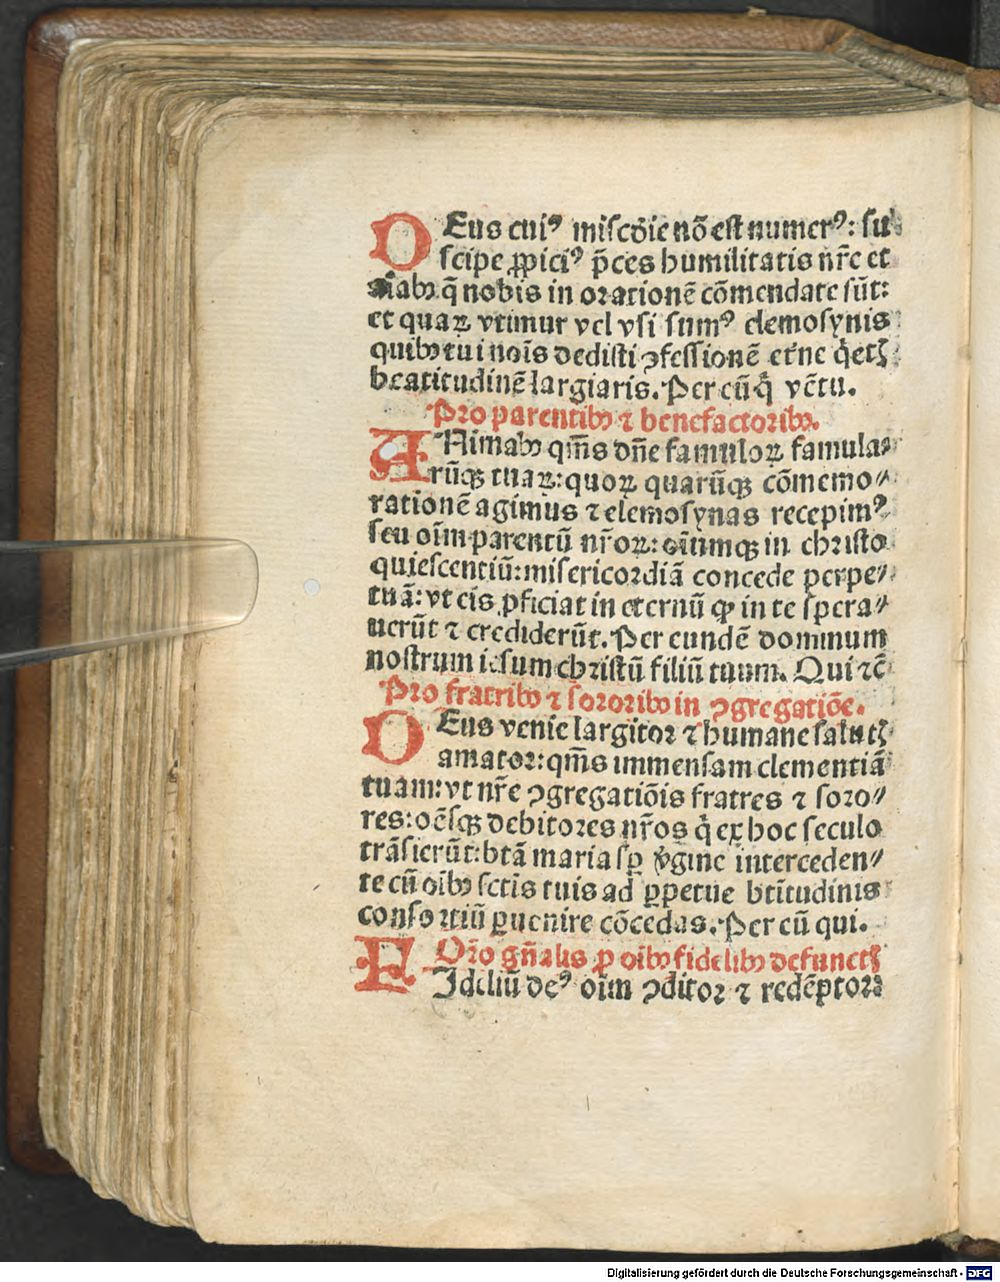 DEus cuiꝰ misc̄die nō est numerꝰ: su
scipe ꝓpiciꝰ p̄ces humilitatis nr̄e et
aīabꝫ q̄ nobis in orationē cōmendate sūt:
et quaꝝ vtimur vel vsi sumꝰ elemosynis
quibꝫ tui nōis dedisti ꝯfessionē et̄ne q̇etꝭ
beatitudinē largiaris. Per eū q̇ vētu.
Pro parentibꝫ ⁊ benefactoribꝫ.
ANimabꝫ qm̄s dn̄e famuloꝝ famula⸗
rūqꝫ tuaꝝ: quoꝝ quarūqꝫ cōmemo⸗
rationē agimus ⁊ elemosynas recepimꝰ
seu oīm parentū nr̄oꝝ: oīumqꝫ in christo
quiescentiū: misericordiā concede perpe⸗
tuā: vt eis ꝓficiat in eternū ꝙ in te spera⸗
uerūt ⁊ crediderūt. Per eundē dominum
nostrum iesum christū filiū tuum. Qui ⁊c̄
Pro fratribꝫ ⁊ sororibꝫ in ꝯgregatiōe.
DEus venie largitor ⁊ humane salutꝭ
amator: qm̄s immensam clementiā
tuam: vt nr̄e ꝯgregatiōis fratres ⁊ soro⸗
res: oēsqꝫ debitores nr̄os q̇ ex hoc seculo
trāsierūt: btā maria sꝑ v̇gine interceden⸗
te cū oibꝫ sctis tuis ad ꝑpetue btītudinis
consortiū ꝑuenire cōcedas. Per eū qui.
Or̄o gn̄alis ꝓ oībꝫ fidelibꝫ defunctꝭ
FIdeliū deꝰ oīm ꝯditor ⁊ redēptor:
Digitalisierung gefördert durch die Deutsche Forschungsgemeinschaft - DFG